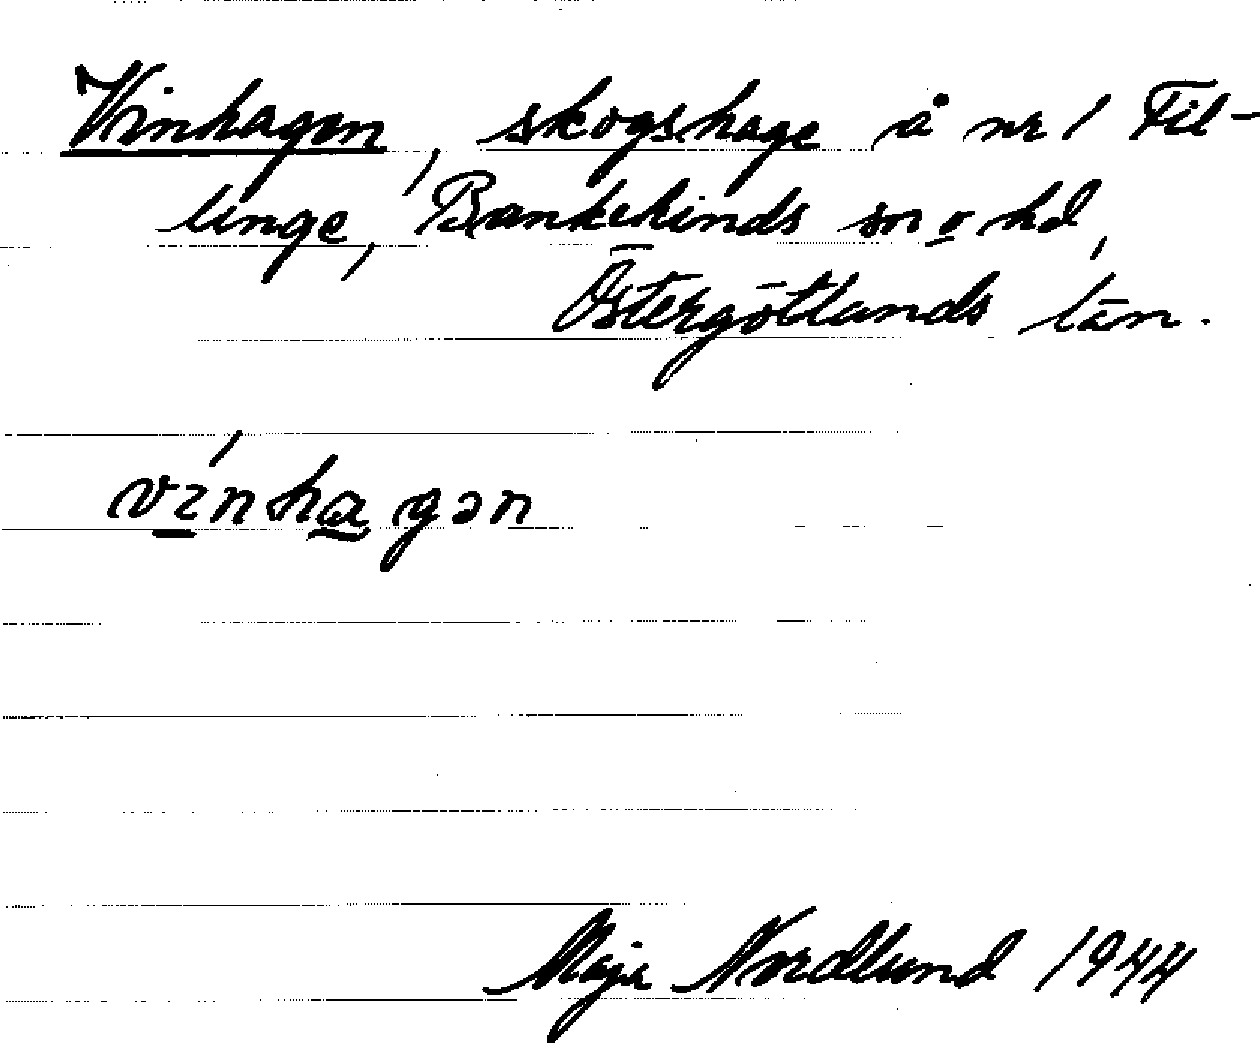 Vinhagen, skogshage å nr 1 Fil-
linge, Bankekinds sn o hd,
Östergötlands län.
vi̱´nha̱gən
Maja Nordlund 1944